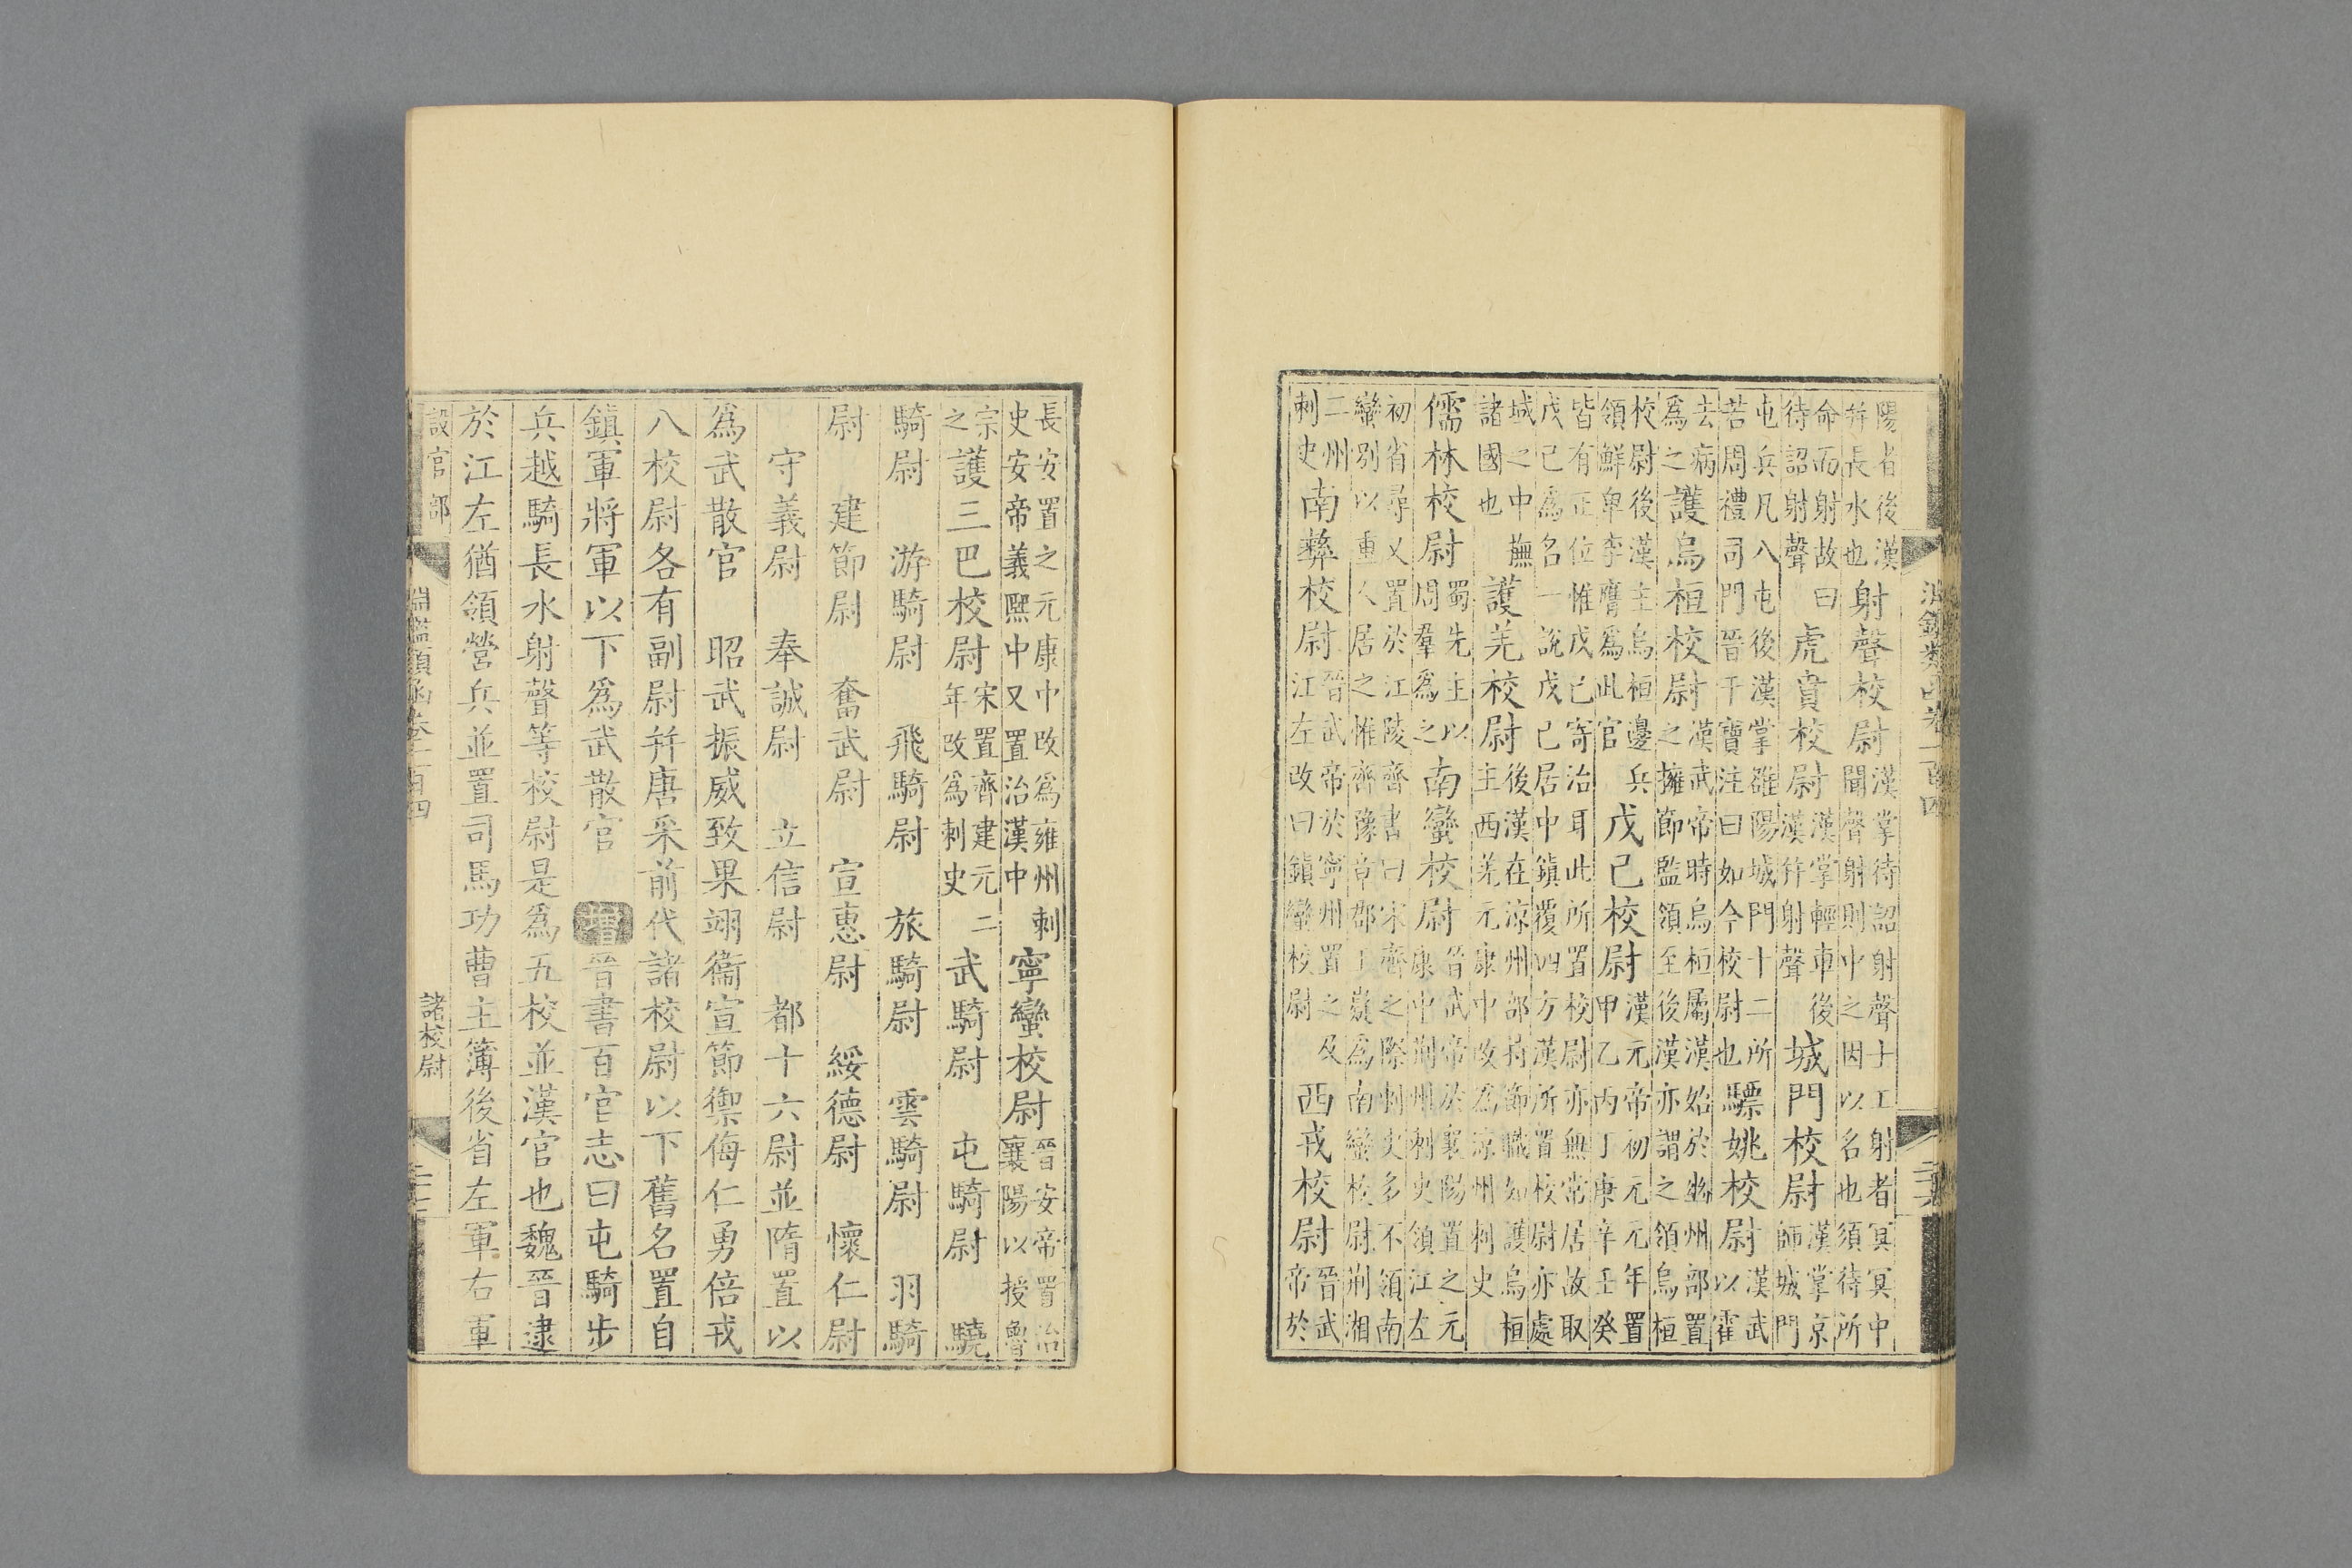 陽者後漢并長水也射聲校尉漢掌待詔射聲士工射者冥冥中聞聲射則中之因以名也須待所
命而射故曰待詔射聲虎賁校尉漢掌輕車後漢并射聲城門校尉漢掌京師城門
屯兵凡八屯後漢掌雒陽城門十二所若周禮司門晉干寶注曰如今校尉也驃姚校尉漢武以霍
去病爲之護烏桓校尉漢武帝時烏桓屬漢始於幽州部置之擁節監領至後漢亦謂之領烏桓
校尉後漢主烏桓邊兵領鮮卑李膺爲此官戊己校尉漢元帝初元元年置甲乙丙丁庚辛壬癸
皆有正位惟戊己寄治耳此所置校尉亦無常居故取戊己爲名一說戊己居中鎮覆四方漢所置校尉亦處
域之中撫諸國也護羌校尉後漢在涼州部持節職如護烏桓主西羌元康中改爲涼州刺史
儒林校尉蜀先主以周羣爲之南蠻校尉晉武帝於襄陽置之元康中荆州刺史領江左
初省尋又置於江陵齊書曰宋齊之際刺史多不領南蠻別以重人居之惟齊豫章郡王嶷爲南蠻校尉荆湘
二州刺史南彝校尉晉武帝於寧州置之及江左改曰鎮蠻校尉西戎校尉晉武帝於
長安置之元康中改爲雍州刺史安帝義熙中又置治漢中寧蠻校尉晉安帝置治襄陽以授魯
宗之護三巴校尉宋置齊建元二年改爲刺史武騎尉 屯騎尉 驍
騎尉 游騎尉 飛騎尉 旅騎尉 雲騎尉 羽騎
尉 建節尉 奮武尉 宣惠尉 綏德尉 懷仁尉
守義尉 奉誠尉 立信尉 都十六尉並隋置以
爲武散官 昭武振威致果翊衞宣節禦侮仁勇倍戎
八校尉各有副尉并唐采前代諸校尉以下舊名置自
鎮軍將軍以下爲武散官 增晉書百官志曰屯騎步
兵越騎長水射聲等校尉是爲五校並漢官也魏晉逮
於江左猶領營兵並置司馬功曹主簿後省左軍右軍
設官部 淵鑑類函卷一百四 諸校尉